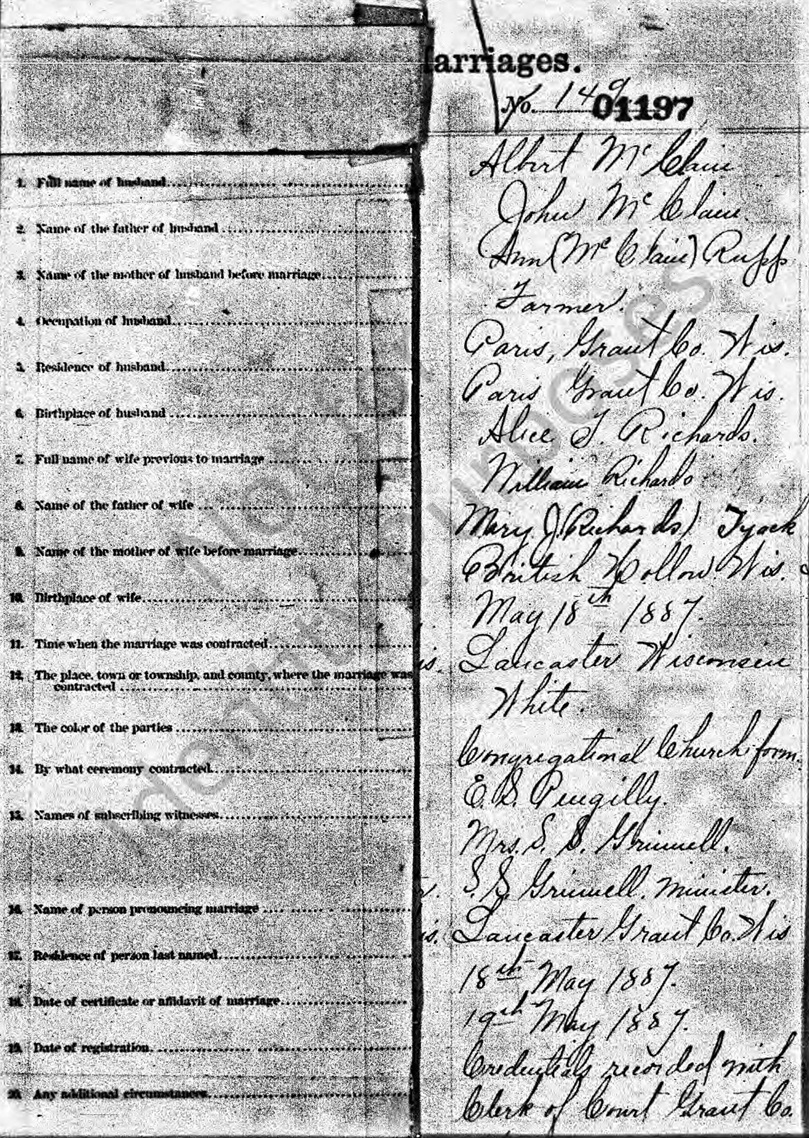 arriages.
No. 149 01197
1. Full name of husband Albert McClain
2. Name of the father of husband John McClain.
3. Name of the mother of husband before marriage Ann (McClain) Rupp
4. Occupation of husband Farmer.
5. Residence of husband Paris, Grant Co. Wis.
6. Birthplace of husband Paris Grant Co. Wis.
7. Full name of wife previous to marriage Alice J. Richards.
8. Name of the father of wife William Richards
9. Name of the mother of wife before marriage Mary J (Richards) Tyack
10. Birthplace of wife British Hollow. Wis.
11. Time when the marriage was contracted May 18th 1887.
12. The place, town or township, and county, where the marriage was
contracted is. Lancaster Wisconsin
13. The color of the parties White.
14. By what ceremony contracted Congregational Church form.
15. Names of subscribing witnesses E. D. Pengilly.
Mrs. S. S. Grinnell.
16. Name of person pronouncing marriage S. S. Grinnell. minister.
17. Residence of person last named is. Lancaster Grant Co. Wis
18. Date of certificate or affidavit of marriage 18th May 1887.
19. Date of registration 19th May 1887.
20. Any additional circumstances Credentials recorded with
Clerk of Court Grant Co.
Not for
Identity Purposes